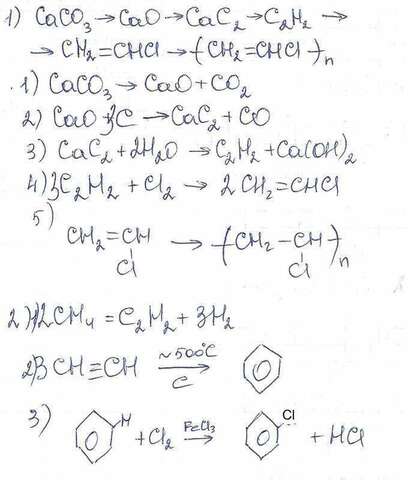 1) CaCO₃→CaO→CaC₂→C₂H₂→
→CH₂=CHCl→(CH₂=CHCl)n
1) CaCO₃→CaO+CO₂
2) CaO+3C→CaC₂+CO
3) CaC₂+2H₂O→C₂H₂+Ca(OH)₂
4) 3C₂H₂+Cl₂→2CH₂=CHCl
5)
CH₂=CH → (CH₂–CH)n
Cl Cl
2) 1) 2CH₄=C₂H₂+3H₂
2) 3CH≡CH ~500°C C
3)
H +Cl₂ FeCl₃→ Cl +HCl